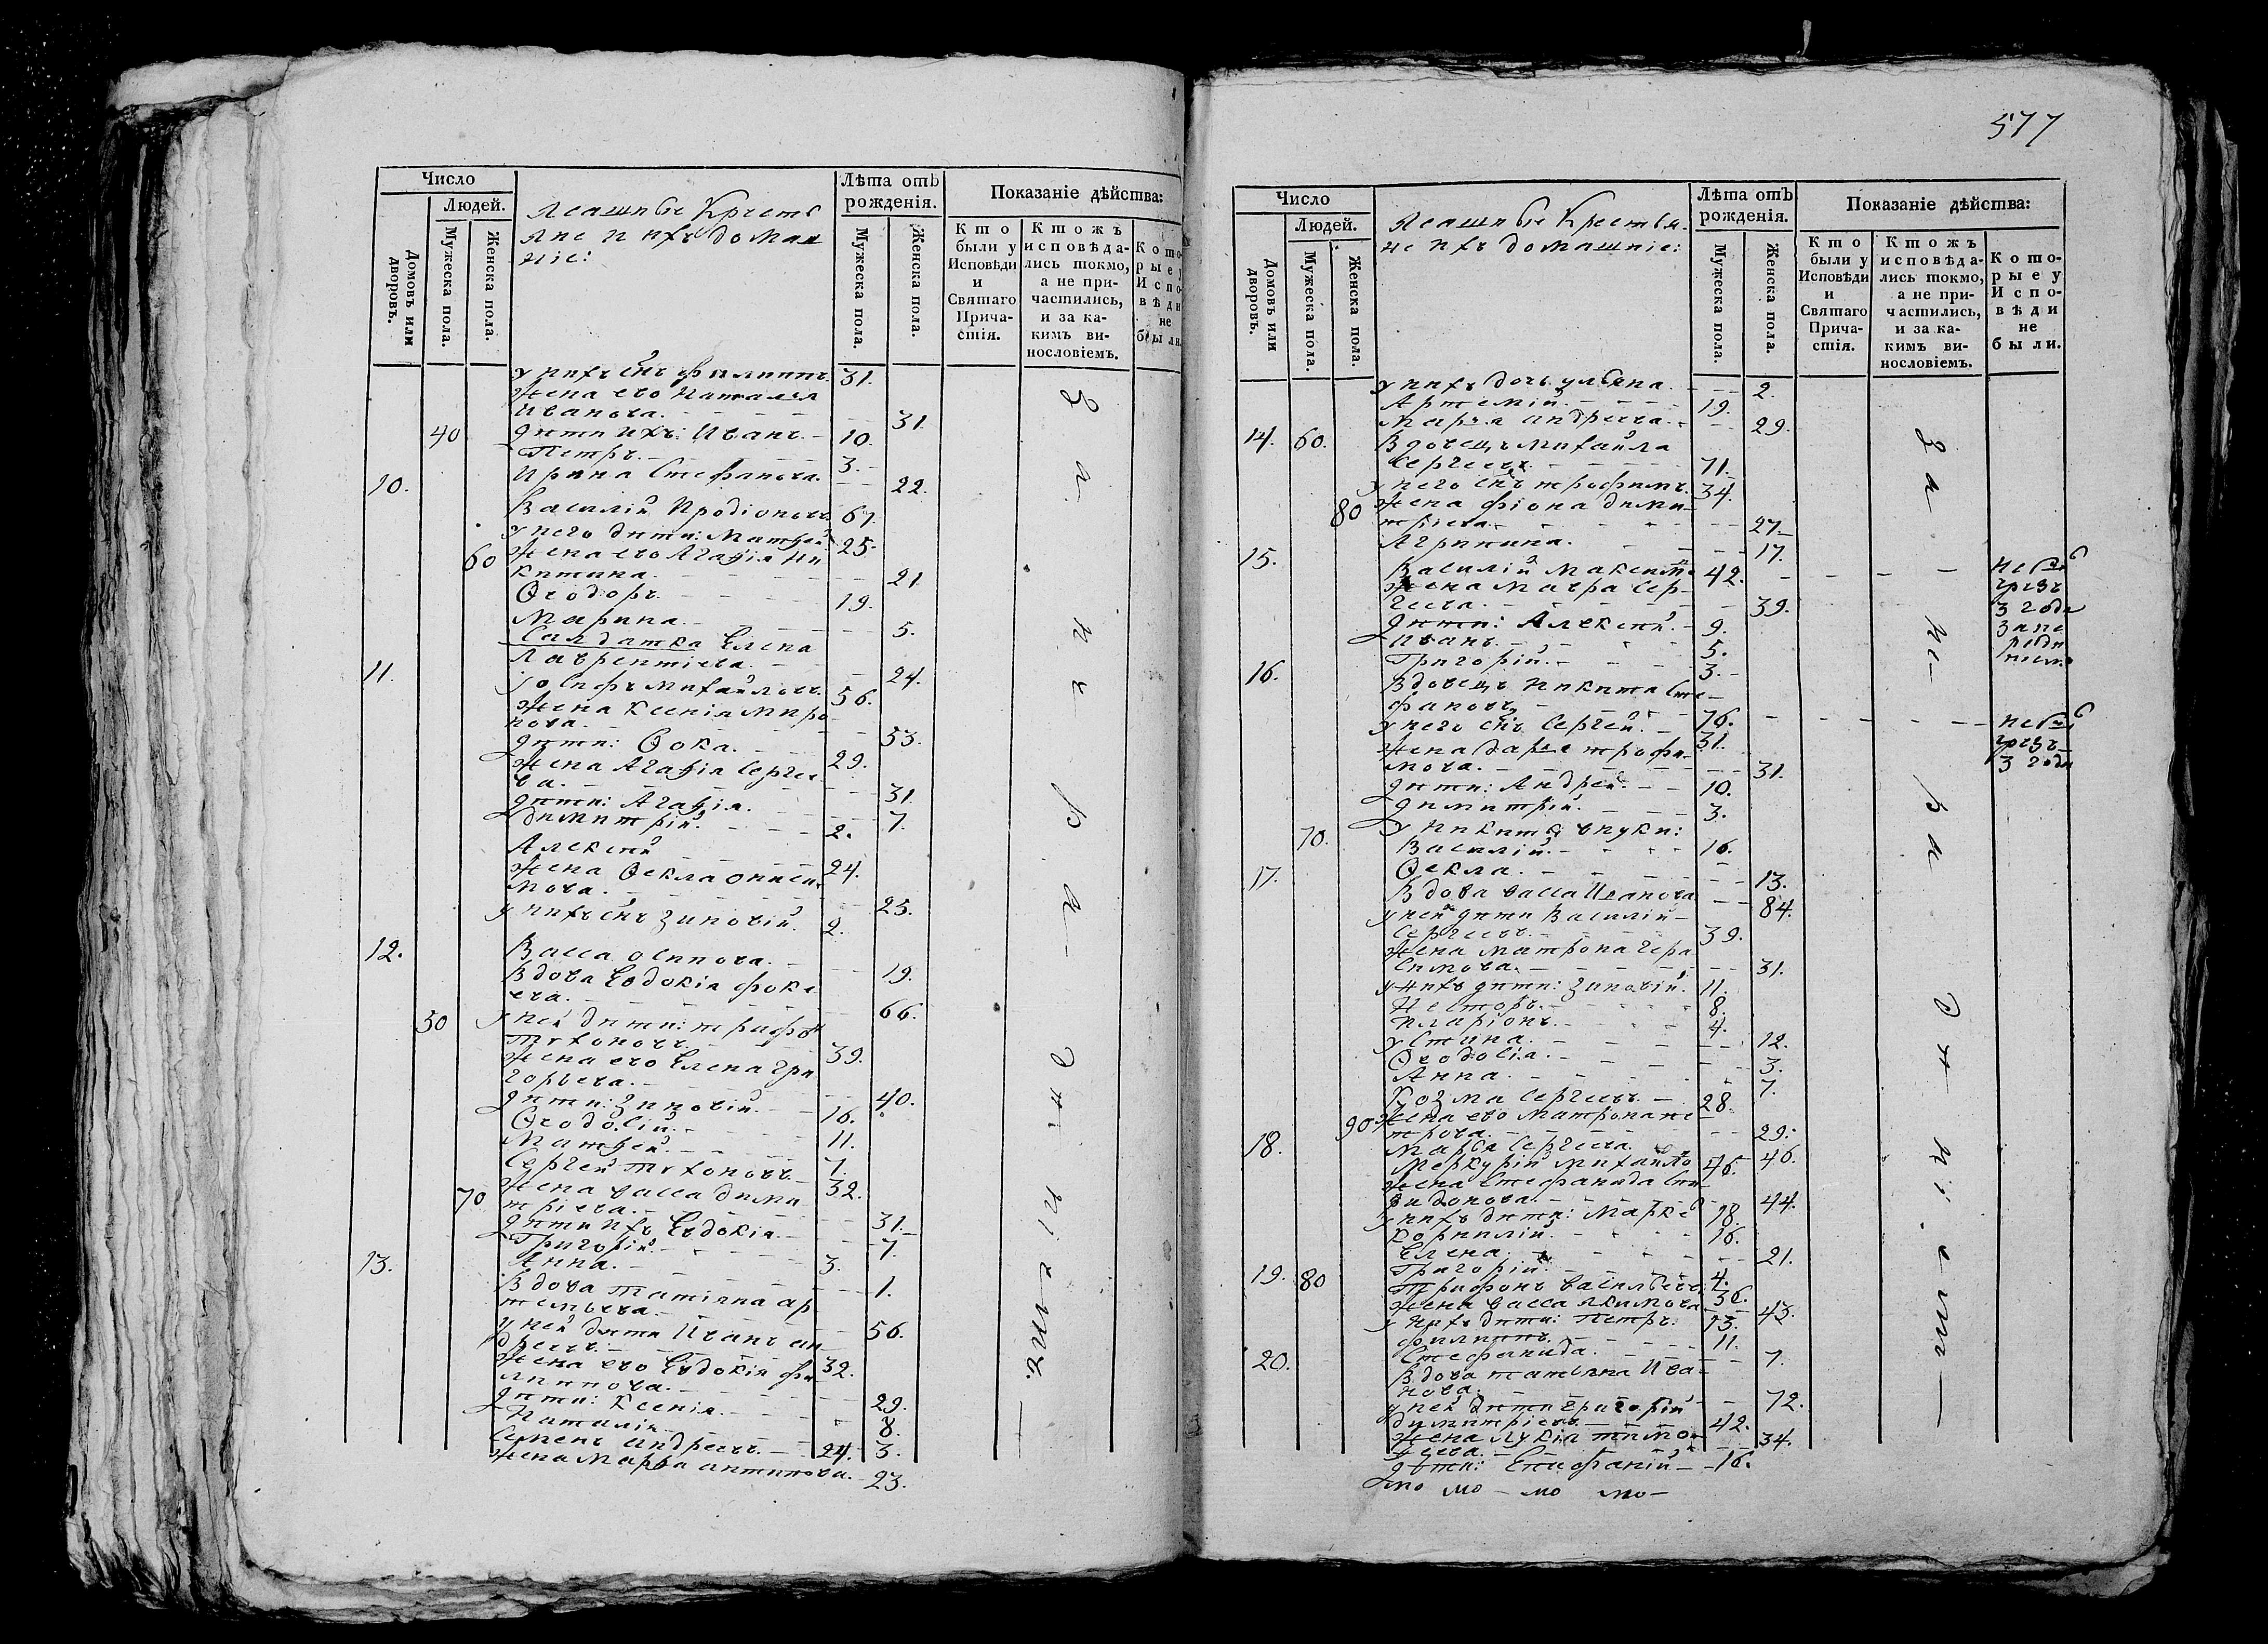 Число
Людей.
Домовъ или дворовъ.
Мужеска пола.
Женска пола.
Ясашные Кресть
яне и ихъ домаш
ніе:
Лѣта отъ рожденія.
Мужеска пола.
Женска пола.
Показаніе дѣйства:
Кто были у Исповѣди и Святаго Причастія.
Ктожъ исповѣдались токмо, а не причастились, и за какимъ винословіемъ.
Которые у Исповѣди не были.
у нихъ снъ Филиппъ. 31.
Жена его Наталья
Иванова. 31.
40 дѣти ихъ: Иванъ. 10.
Петръ. 3.
Ирина Стефанова. 22.
10. Василій Иродіоновъ 67.
у него дѣти: Матѳей 25.
60 Жена его Агаѳія Ни
китина. 21
Ѳеодоръ. 19.
Марина. 5.
Салдатка Елена
Лаврентіева. 24.
11. Іосифъ Михайловъ 56.
Жена Ксенія Миро
нова. 53.
дѣти: Ѳока. 29.
Жена Агаѳія Сергее
ва. 31.
дѣти: Агаѳія. 7.
Димитрій. 2.
Алексѣй 24.
Жена Ѳекла Ониси
мова. 25.
у нихъ снъ Зиновій. 2.
Васса Осипова. 19.
12. Вдова Евдокія Фоке
ева. 66.
50 у ней дѣти: Трифо
Тихоновъ. 39.
Жена его Елена Гри
горьева. 40.
дѣти: Зиновій. 16.
Ѳеодосій. 11.
Матѳей. 7.
Сергей Тихоновъ. 32.
70 Жена Васса Дими
тріева. 31.
дѣти ихъ Евдокія 7.
Григорій. 3.
Анна. 1.
13. Вдова Татіяна Ар
темьева. 56.
у ней дѣти Иванъ Ан
дреевъ. 32.
Жена его Евдокія Фи
липпова. 29.
дѣти: Ксенія. 8.
Наталія 3.
Семенъ Андреевъ. 24.
Жена Марѳа Антипова. 23.
577
Число
Людей.
Домовъ или дворовъ.
Мужеска пола.
Женска пола.
Ясашные Крестья
не ихъ домашніе:
Лѣта отъ рожденія.
Мужеска пола.
Женска пола.
Показаніе дѣйства:
Кто были у Исповѣди и Святаго Причастія.
Ктожъ исповѣдались токмо, а не причастились, и за какимъ винословіемъ.
Которые у Исповѣди не были.
у нихъ дочь Ульяна. 2.
Артемій. 19.
Марѳа Андреева. 29.
14. 60. Вдовецъ Михайла
Сергеевъ. 71.
у него снъ Трофимъ. 34.
80 Жена Фіона Дими
тріева. 27
Агрипина. 17.
15. Василій Максим 42.
Жена Мавра Сер
геева. 39.
дѣти: Алексѣй. 9.
Иванъ. 5.
Григорій. 3.
не б
чрезъ
3 года
16. Вдовецъ Никита Сте
фановъ 76.
у него снъ Сергей. 31.
Жена Дарья Трофи
мова. 31.
дѣти: Андрей. 10.
Димитрій. 3.
не б
чрезъ
3 года
у Никиты внуки:
70. Василій. 16.
Ѳекла. 13.
17. Вдова Васса Иванова 84.
у ней дѣти Василій
Сергеевъ. 39.
Жена Матрона Гера
симова. 31.
у нихъ дѣти: Зиновій. 11.
Несторъ. 8.
Иларіонъ. 4.
Устина. 12.
Ѳеодосія. 3.
Анна. 7.
Козма Сергеевъ. 28.
90. Жена его Матрона Пе
трова. 29.
Марѳа Сергеева. 46.
18. Меркурій Михайло 46.
Жена Стефанида Спи
ридонова. 44.
у нихъ дѣти: Марке 18.
Корнилій. 16.
Елена. 21.
Григорій. 4.
19. 80 Трифонъ Васильевъ 36.
Жена Васса Якимова 43.
у нихъ дѣти: Петръ. 13.
Филиппъ. 11.
Стефанида. 7.
20. Вдова Татьяна Ива
нова. 72.
у ней дѣти Григорій
Димитріевъ 42.
Жена Лукія Тимо
ѳеева. 34.
дѣти: Епифаній 16.